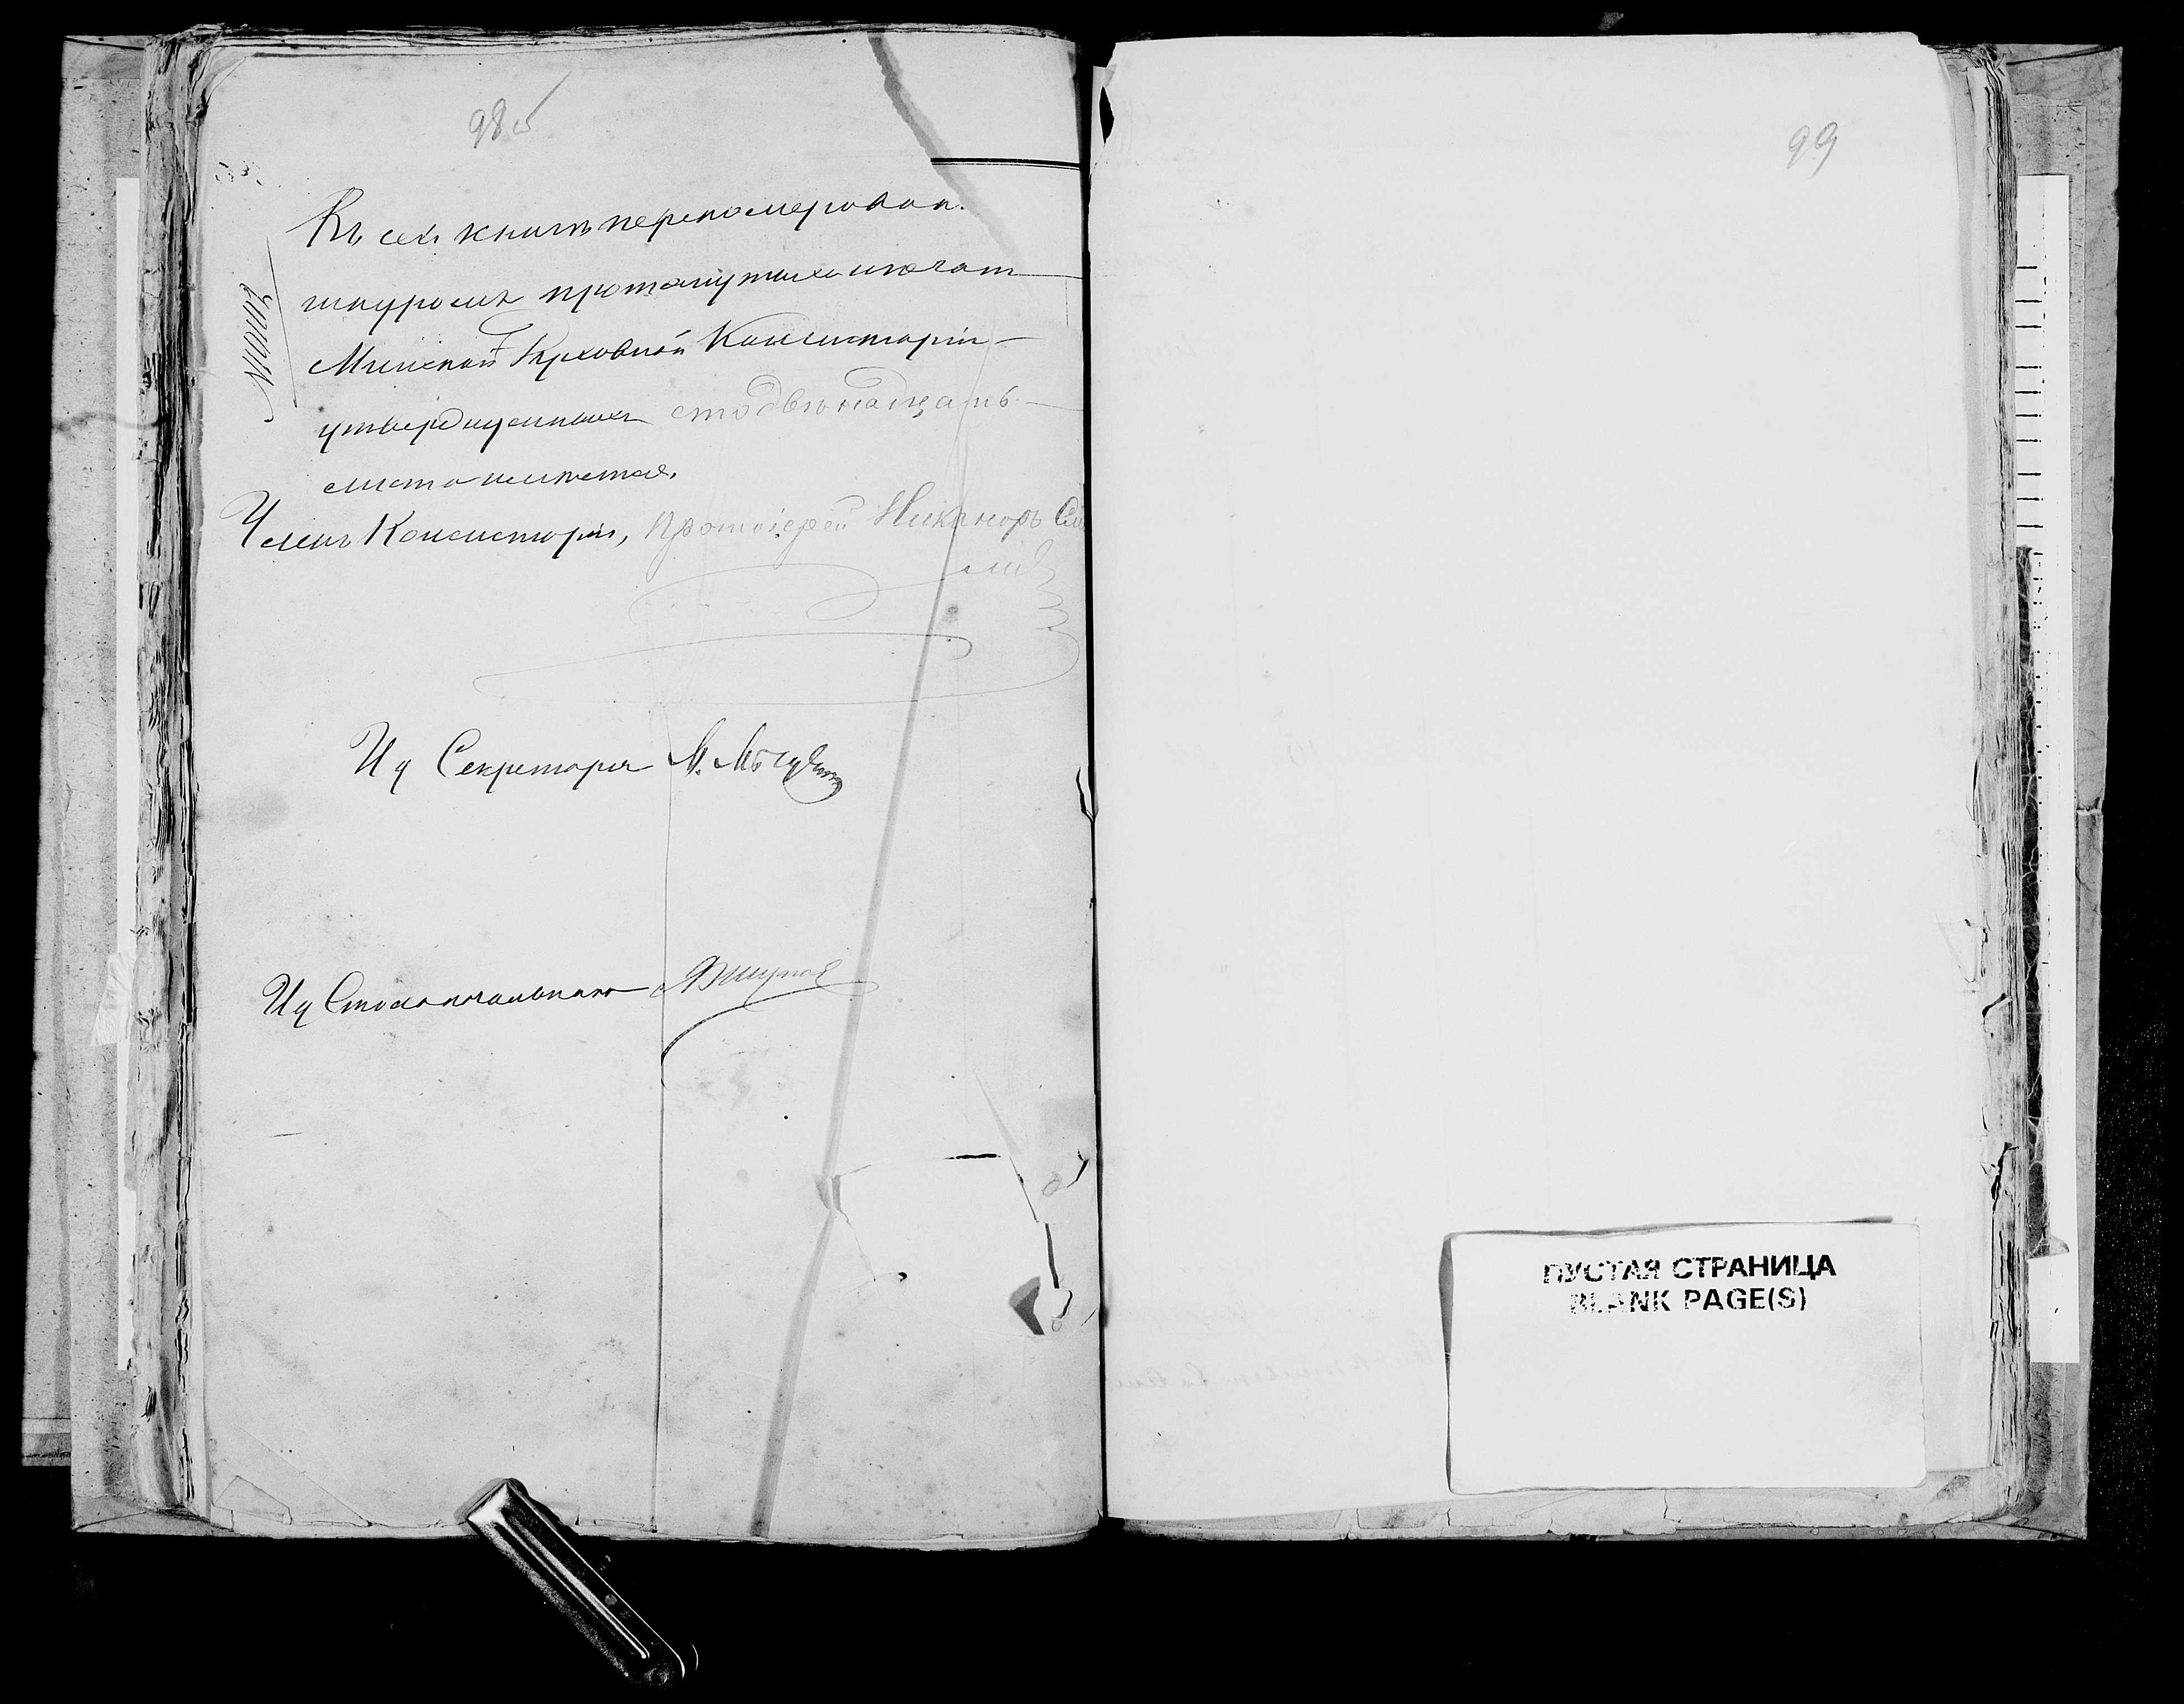 98 об
Въ сей книгѣ перенумерован.
шнуромъ протянутыхъ и печат
Минской Духовной Консисторіи
утвержденныхъ сто двѣнадцать
листа имѣется.
Членъ Консисторіи, Протоіерей Никаноръ См
И д Секретаря М.
И д Столоначальника
99
ПУСТАЯ СТРАНИЦА
BLANK PAGE(S)